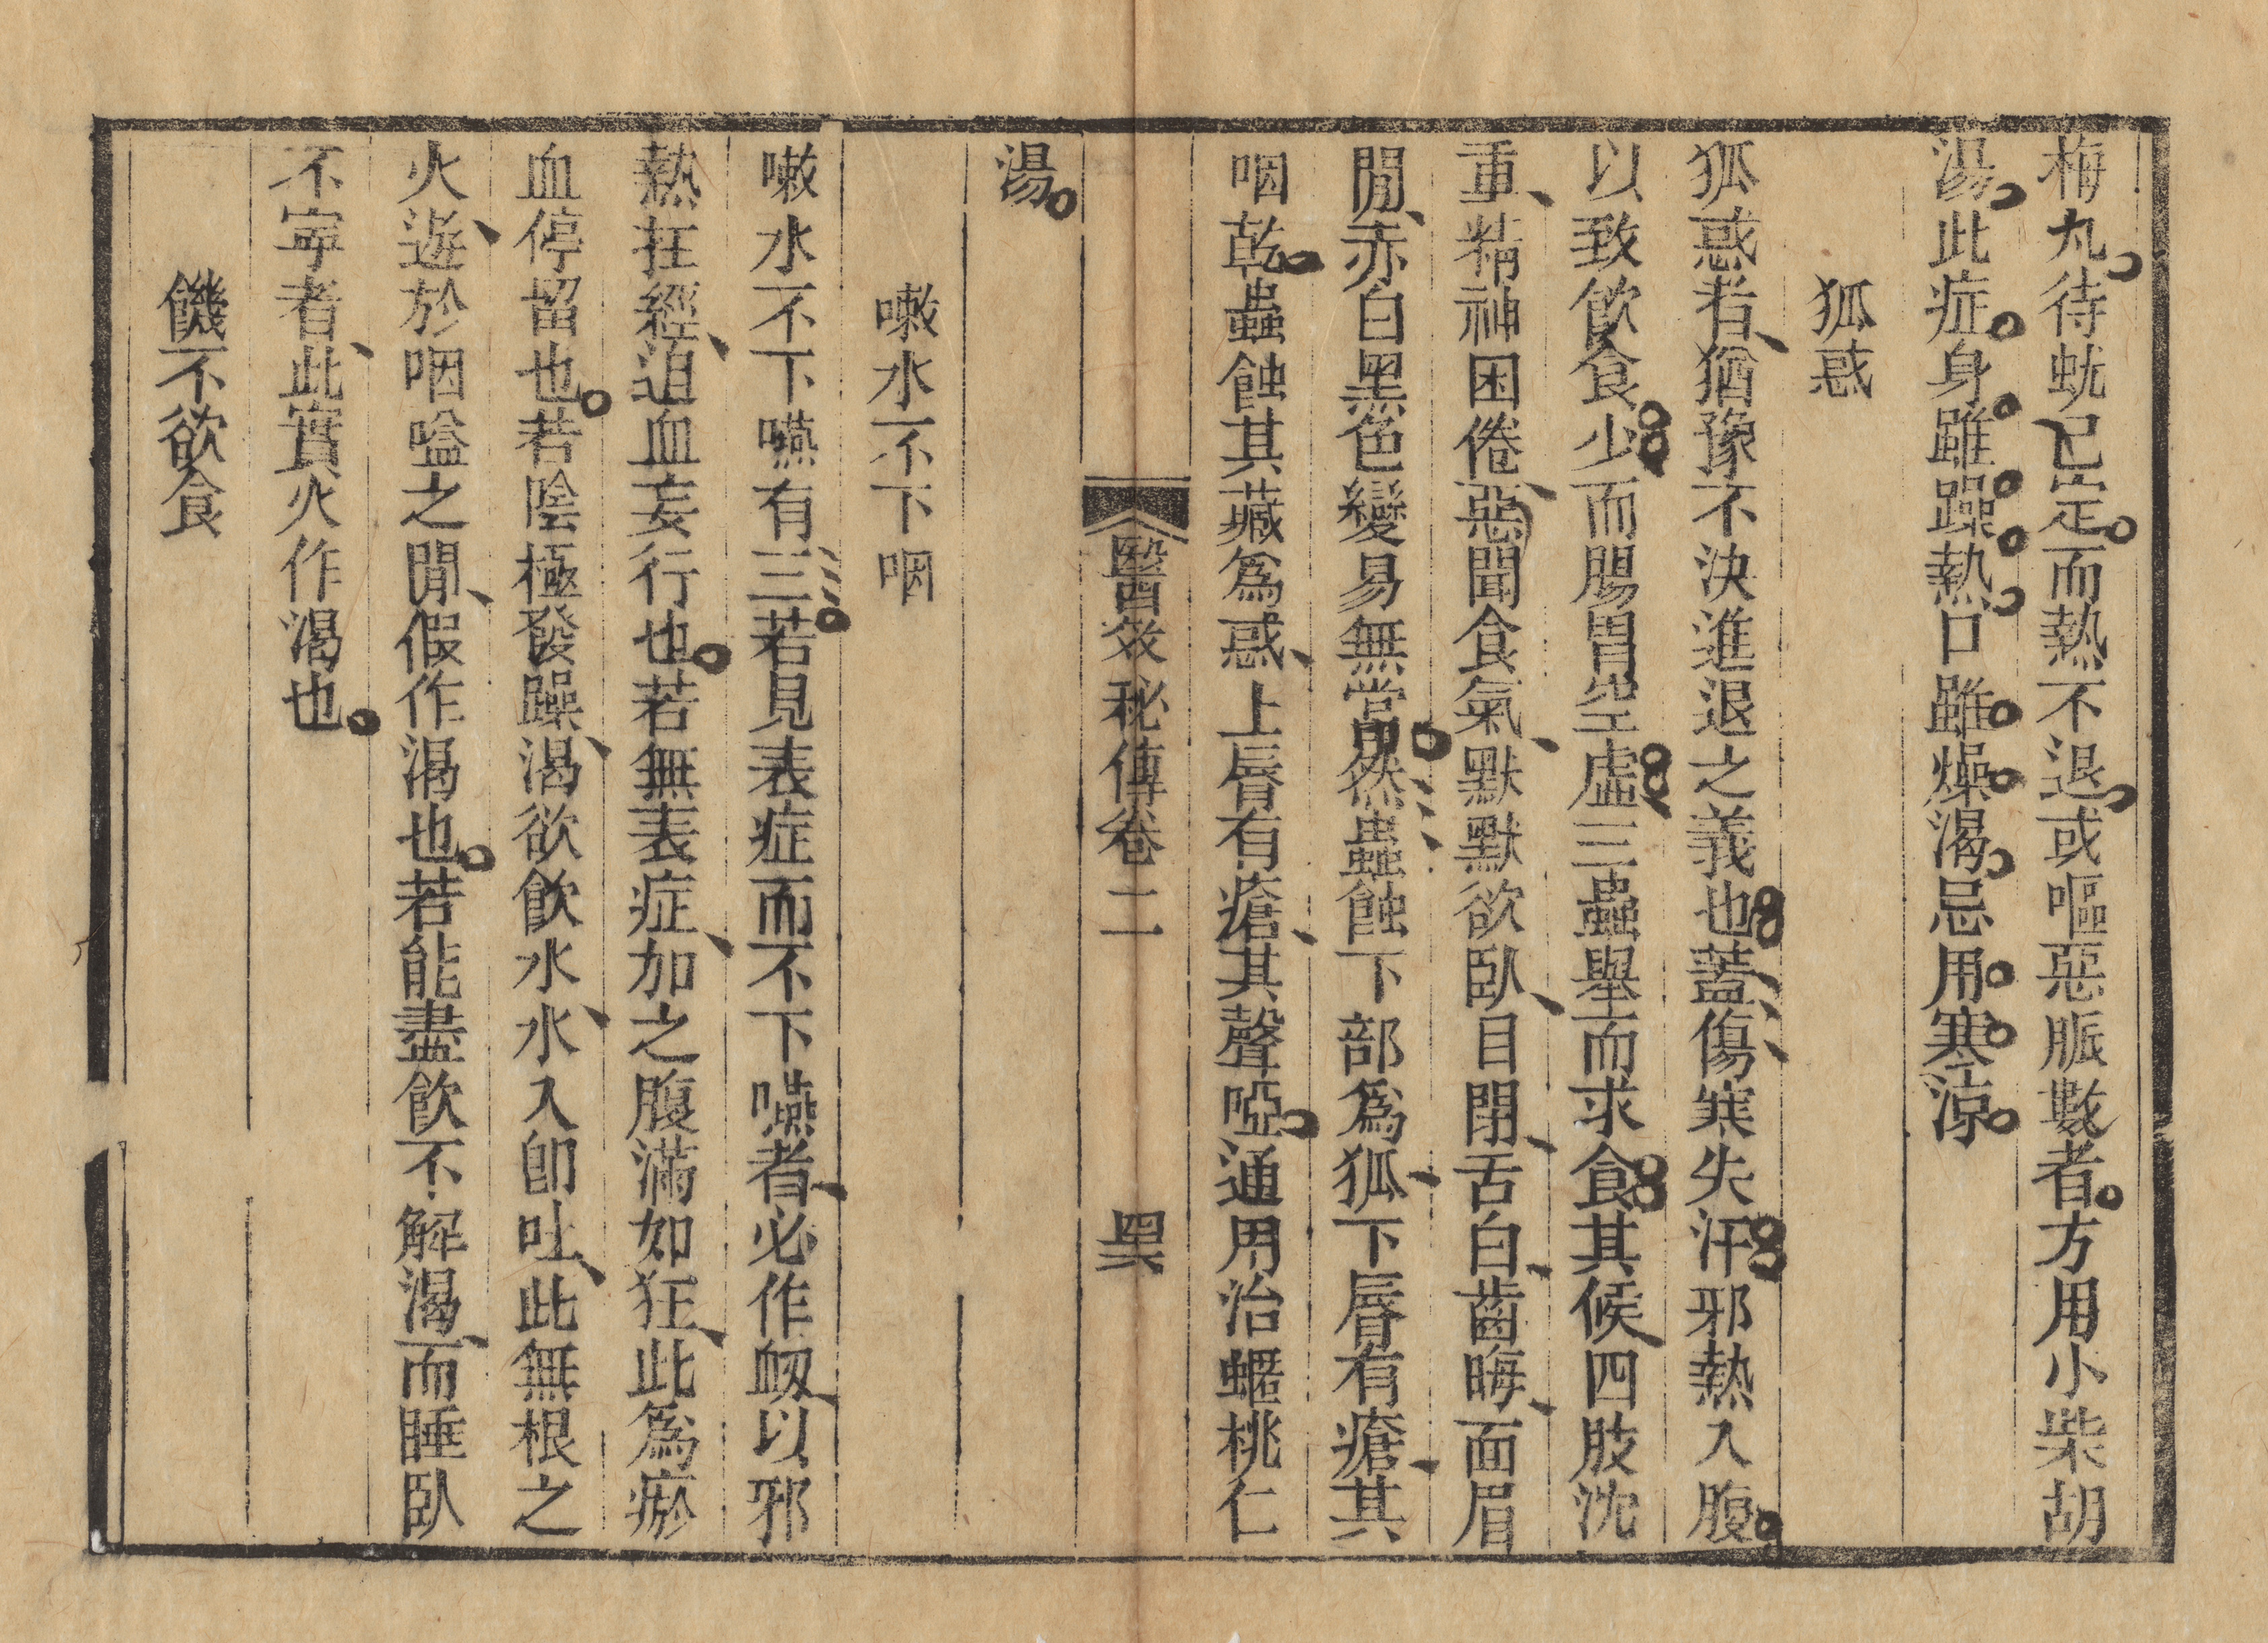 梅丸待蚘已定而熱不退或嘔惡脈數者方用小柴胡
湯此症身雖躁熱口雖燥渴忌用寒涼
狐惑
狐惑者猶豫不決進退之義也蓋傷寒失汗邪熱入腹
以致飲食少而腸胃空虛三蟲舉而求食其候四肢沈
重精神困倦惡聞食氣默默欲臥目閉舌白齒晦面眉
閒赤白黑色變易無當然蟲蝕下部為狐下唇有瘡其
咽乾蟲蝕其藏為惑上唇有瘡其聲啞通用治䘌桃仁
醫效秘傳卷二
湯
嗽水不下咽
嗽水不下嚥有三若見表症而不下嚥者必作衂以邪
熱在經迫血妄行也若無表症加之腹滿如狂此為瘀
血停留也若陰極發躁渴欲飲水水入卽吐此無根之
火遊於咽嗌之閒假作渴也若能盡飲不解渴而睡臥
不寧者此實火作渴也
饑不欲食